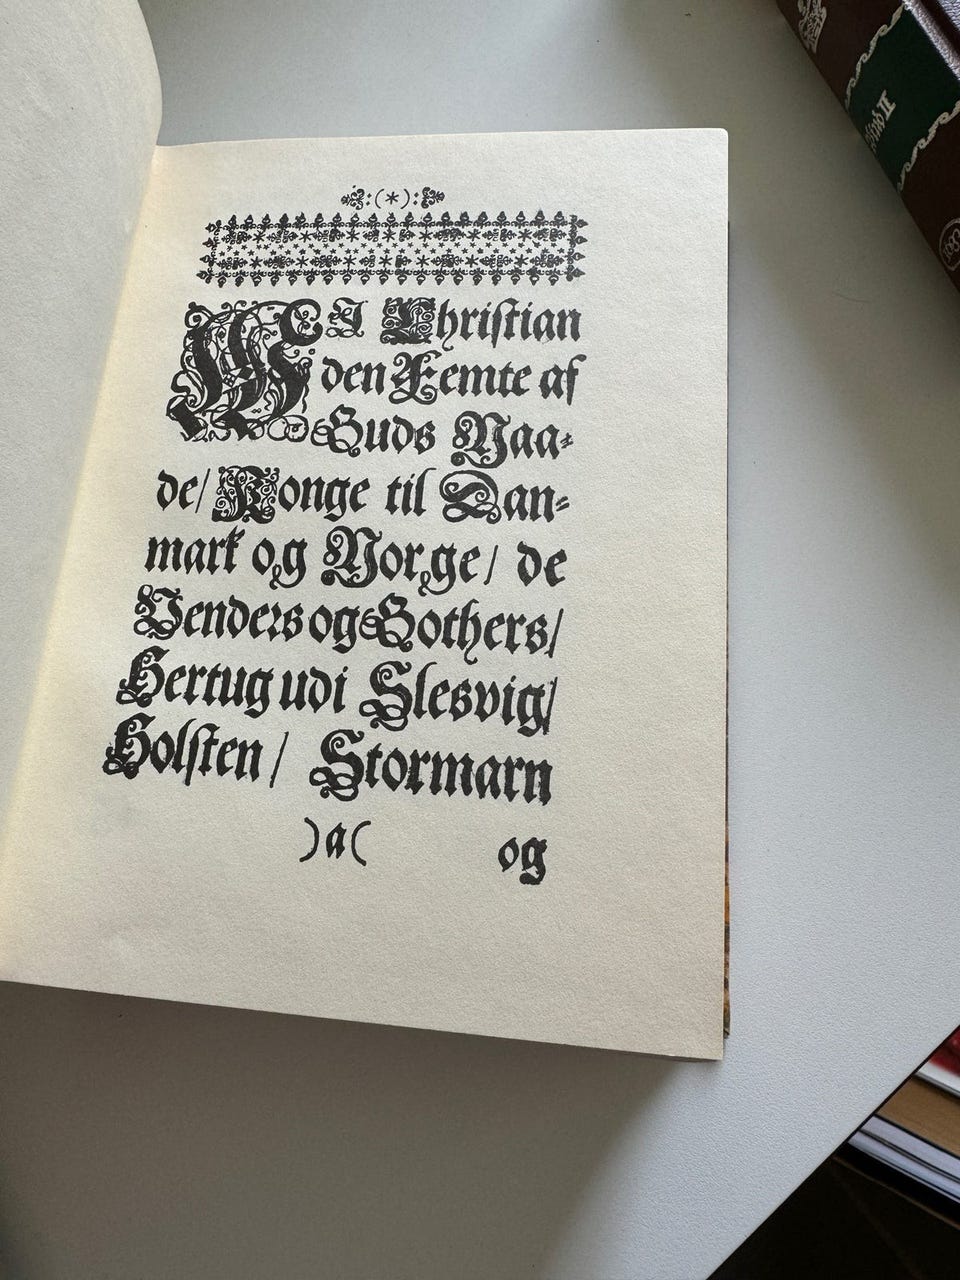 :(*):
WJ Christian
den Femte af
Guds Naa⸗
de/ Konge til Dan⸗
mark og Norge/ de
Venders og Gothers/
Hertug udi Slesvig/
Holsten/ Stormarn
)a( og
Bind II
1683